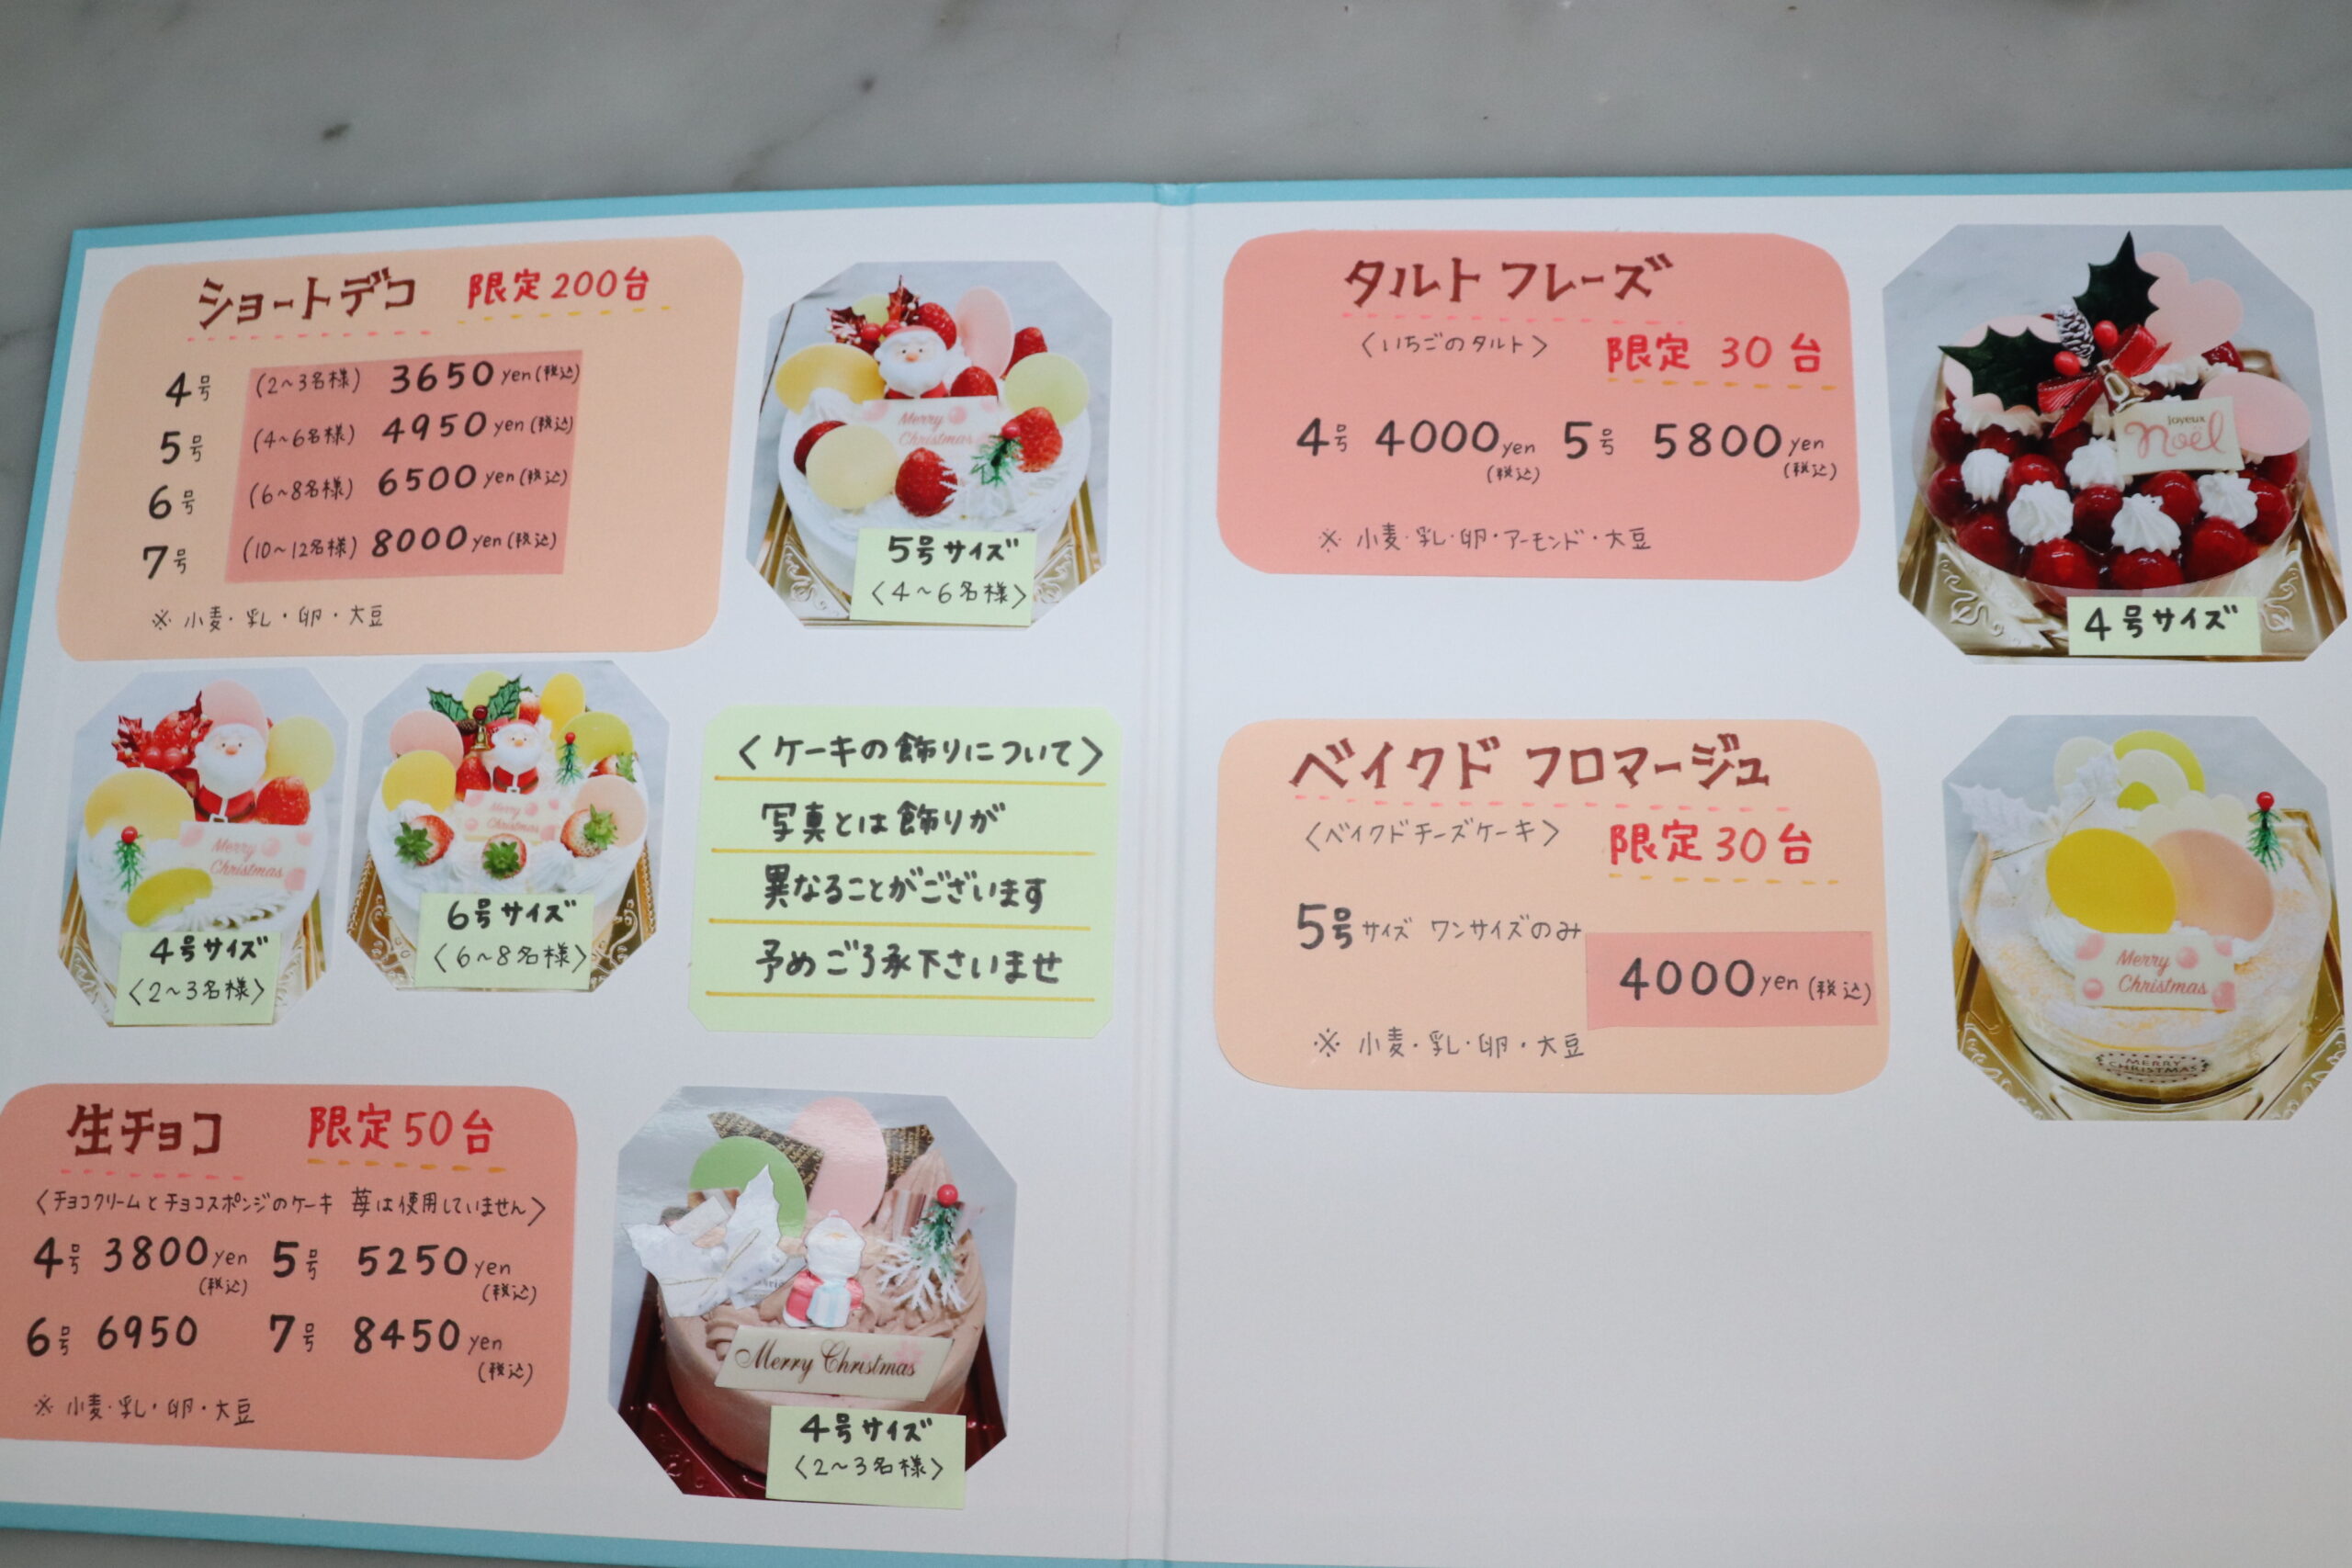 ショートデコ 限定200台
4号 (2~3名様) 3650yen(税込)
5号 (4~6名様) 4950yen(税込)
6号 (6~8名様) 6500yen(税込)
7号 (10~12名様) 8000yen(税込)
※ 小麦・乳・卵・大豆
Merry
Christmas
5号サイズ
〈4~6名様〉
Merry
Christmas
4号サイズ
〈2~3名様〉
Merry
Christmas
6号サイズ
〈6~8名様〉
〈ケーキの飾りについて〉
写真とは飾りが
異なることがございます
予めご了承下さいませ
生チョコ 限定50台
〈チョコクリームとチョコスポンジのケーキ 苺は使用していません〉
4号 3800yen(税込) 5号 5250yen(税込)
6号 6950 7号 8450yen(税込)
※ 小麦・乳・卵・大豆
Merry Christmas
4号サイズ
〈2~3名様〉
タルト フレーズ
〈いちごのタルト〉 限定 30台
4号 4000yen(税込) 5号 5800yen(税込)
※ 小麦・乳・卵・アーモンド・大豆
Joyeux
noël
4号サイズ
ベイクド フロマージュ
〈ベイクドチーズケーキ〉 限定30台
5号サイズ ワンサイズのみ
4000yen(税込)
※ 小麦・乳・卵・大豆
Merry
Christmas
MERRY
CHRISTMAS